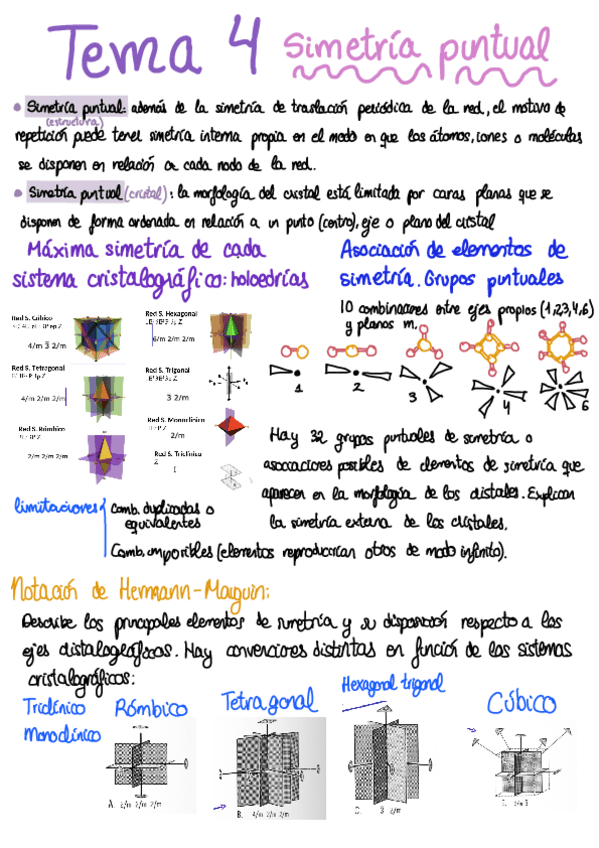 Tema 4 Simetría puntual
• Simetría puntual: además de la simetría de traslación periódica de la red, el motivo de
(estructura)
repetición puede tener simetría interna propia en el modo en que los átomos, iones o moléculas
se disponen en relación a cada nodo de la red.
• Simetría puntual (cristal): la morfología del cristal está limitada por caras planas que se
disponen de forma ordenada en relación a un punto (centro), eje o plano del cristal
Máxima simetría de cada
sistema cristalográfico: holoedrías
Red S. Cúbico
4/m 3 2/m
Red S. Hexagonal
6/m 2/m 2/m
Red S. Tetragonal
4/m 2/m 2/m
Red S. Trigonal
3 2/m
Red S. Rómbico
2/m 2/m 2/m
Red S. Monoclínico
2/m
Red S. Triclínico
Z
Asociación de elementos de
simetría. Grupos puntuales
10 combinaciones entre ejes propios (1,2,3,4,6)
y planos m.
1 2 3 4 6
Hay 32 grupos puntuales de simetría o
asociaciones posibles de elementos de simetría que
aparecen en la morfología de los cristales. Explican
la simetría externa de los cristales.
limitaciones
Comb. duplicadas o
equivalentes
Comb. imposibles (elementos reproducirían otros de modo infinito).
Notación de Hermann-Mauguin:
Describe los principales elementos de simetría y su disposición respecto a los
ejes cristalográficos. Hay convenciones distintas en función de los sistemas
cristalográficos:
Triclínico
Monoclínico
Rómbico
Tetragonal
Hexagonal trigonal
Cúbico
A. 2/m 2/m 2/m
B. 4/m 2/m 2/m
3 2/m